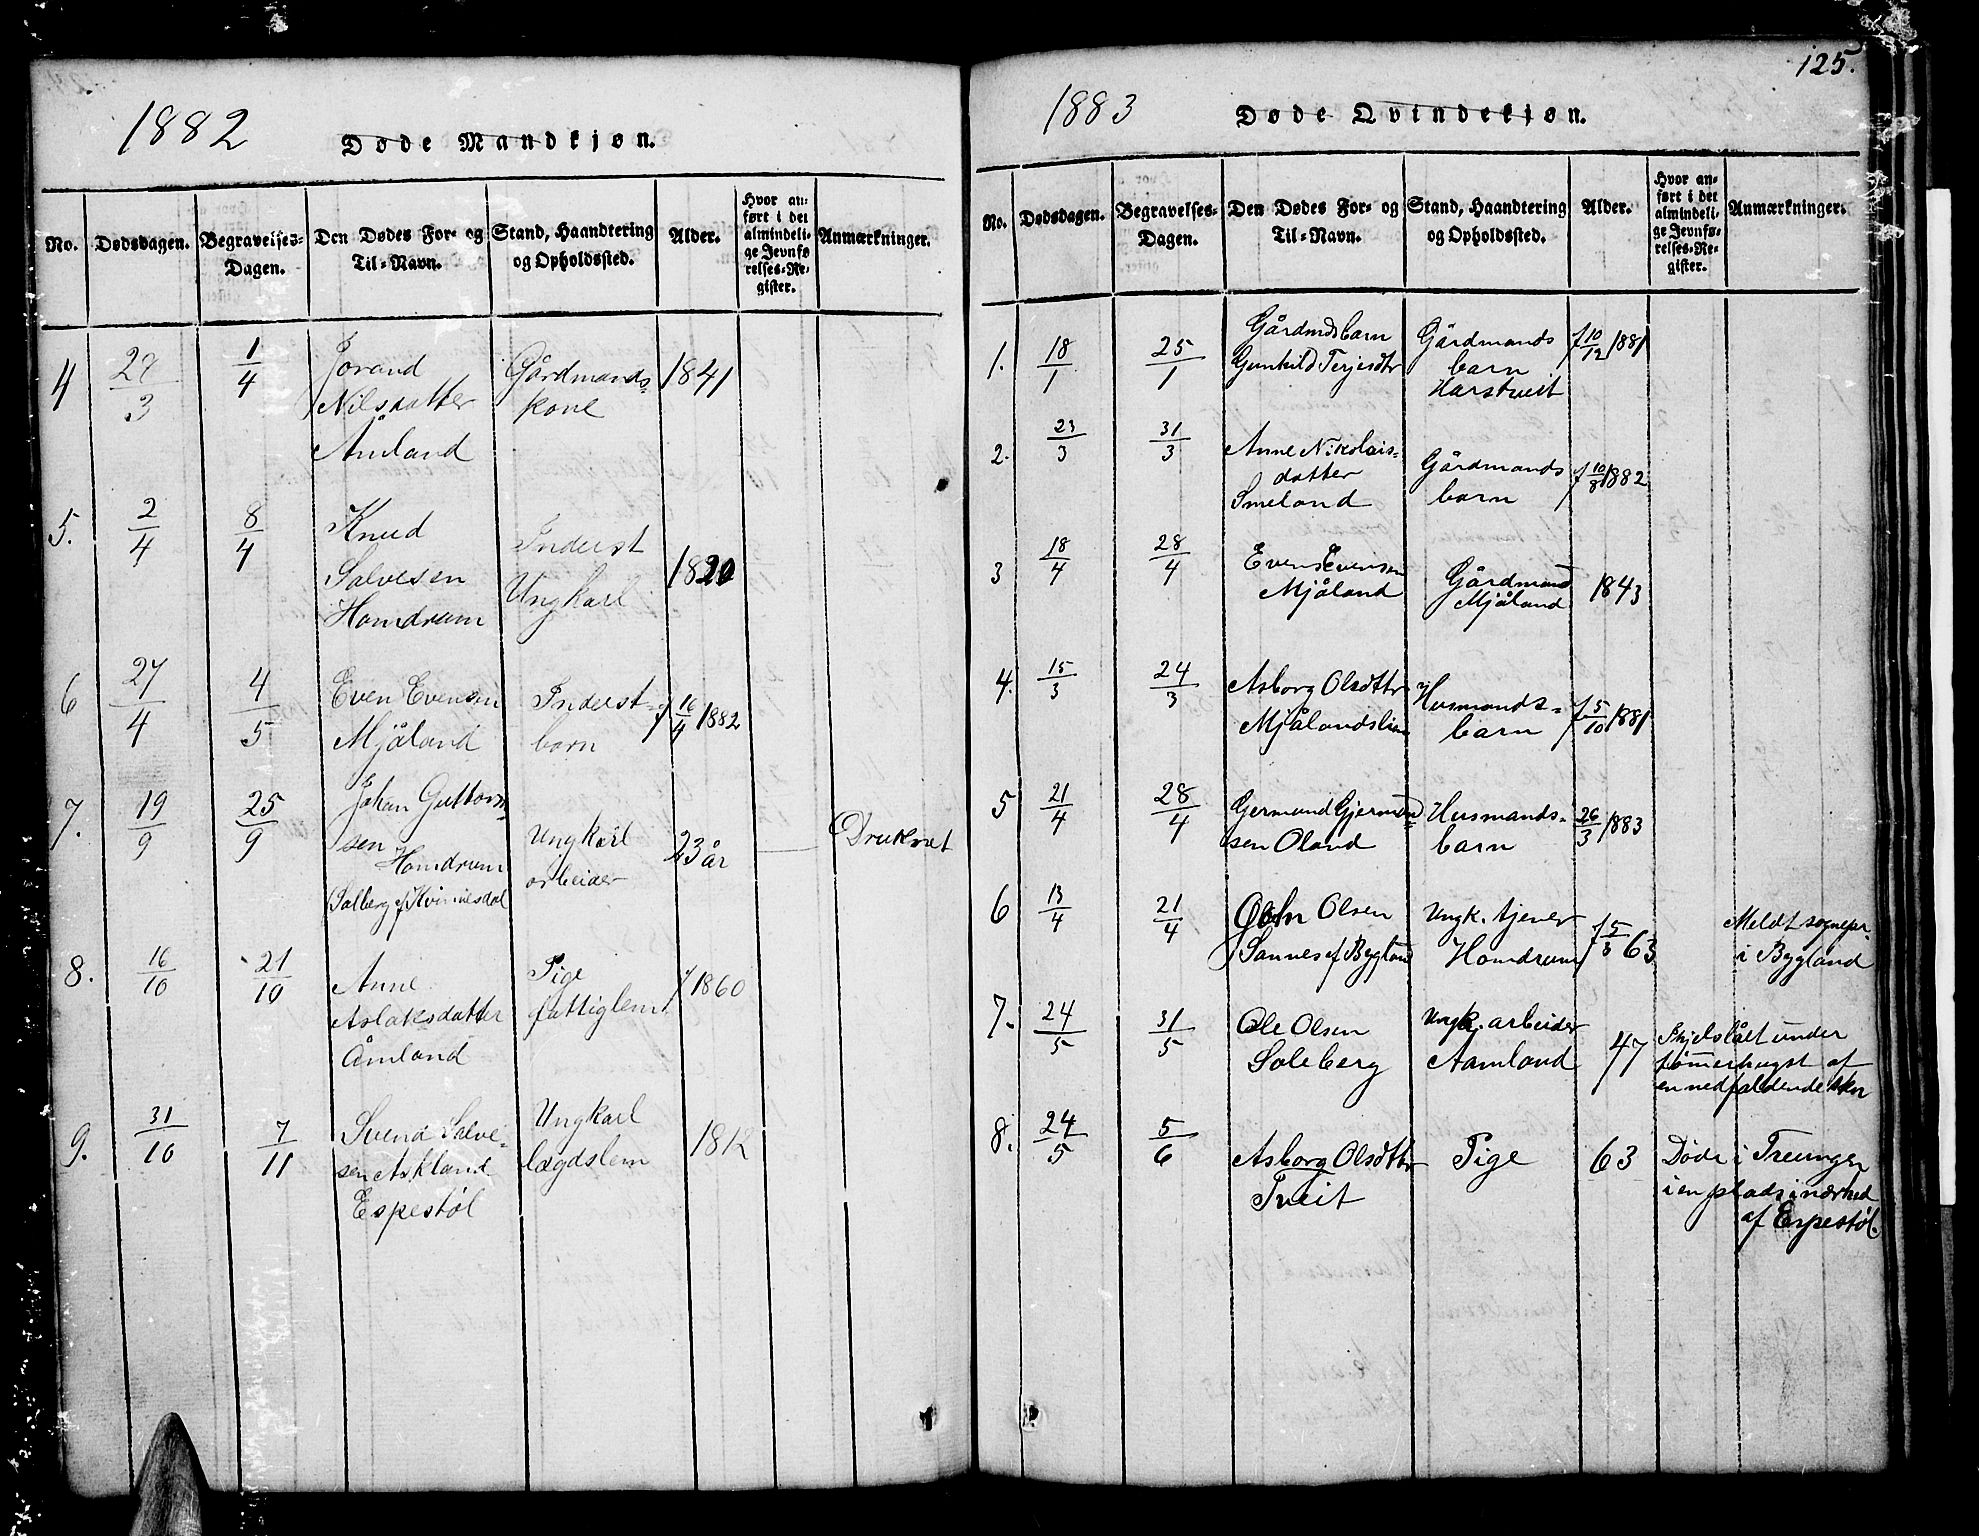 1882
Døde Mandkjøn.
No. Dødsdagen. Begravelses-Dagen. Den Dødes For- og Til-Navn. Stand, Haandtering og Opholdssted. Alder. Hvor anført i det almindelige Jevnførelses-Register. Anmærkninger.
4 27/3 1/4 Jorand Gårdmands- 1841
Nilsdatter kone
Åmland
5. 2/4 8/4 Knud Inderst 1820
Salvesen Ungkarl
Homdrum
6 27/4 4/5 Even Evensen Inderst- f 16/4 1882
Mjåland barn
7. 19/9 25/9 Johan Guttorm- Ungkarl 23 år Druknet
sen Homdrum arbeider
Solberg af Kvinnesdal
8. 16/10 21/10 Anne Pige f 1860
Aslaksdatter fattiglem
Åmland
9. 31/10 7/11 Svend Salve- Ungkarl 1812
sen Askland lægdslem
Espestøl
125.
1883
Døde Qvindekjøn.
No. Dødsdagen. Begravelses-Dagen. Den Dødes For- og Til-Navn. Stand, Haandtering og Opholdssted. Alder. Hvor anført i det almindelige Jevnførelses-Register. Anmærkninger.
1. 18/1 25/1 Gårdmdsbarn Gårdmands f 10/12 1881
Gunhild Terjesdtr barn
Harstveit
2. 23/3 31/3 Anne Nikolais- Gårdmands f 10/8 1882
datter barn
Smeland
3 18/4 28/4 Even Evensen Gårdmand 1843
Mjåland Mjåland
4. 15/3 24/3 Asborg Olsdtr Husmands- f 5/10 1881
Mjålandslien barn
5 21/4 28/4 Gjermund Gjermund- Husmands- 26/3 1883
sen Oland barn
6 13/4 21/4 Olsen Ungk. tjener f 5/3 63 Meldt sognepr.
Sannes af Bygland Homdrum i Bygland
7. 24/5 31/5 Ole Olsen Ungk. arbeider 47 Ihjelslået under
Soleberg Aamland tømmerhugst af
en nedfaldende
8. 24/5 5/6 Asborg Olsdtr Pige 63 Døde i Treungen
Tveit i en plads i nærhed
af Espestøl.